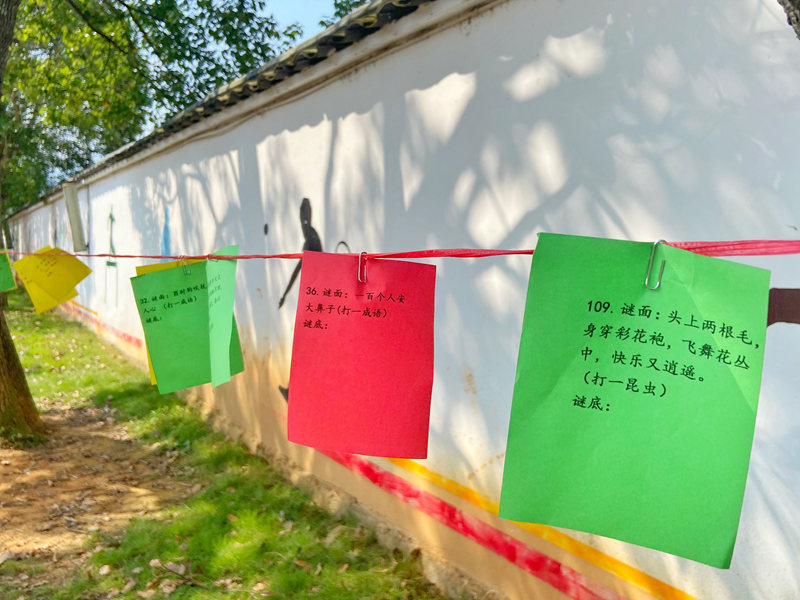 32. 谜面：百时狗吠扰
人心 （打一成语）
谜底：
36. 谜面：一百个人安
大鼻子(打一成语)
谜底：
109. 谜面：头上两根毛，
身穿彩花袍，飞舞花丛
中，快乐又逍遥。
（打一昆虫）
谜底：